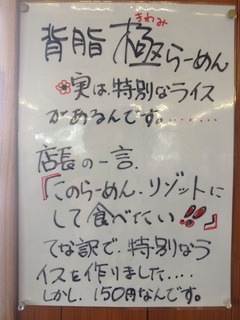 きわみ
背脂 極らーめん
実は、特別なライス
があるんです。‥‥‥
店長の一言.
『このらーめん.リゾットに
して食べたい!!』
てな訳で、特別なラ
イスを作りました....
しかし、150円なんです。